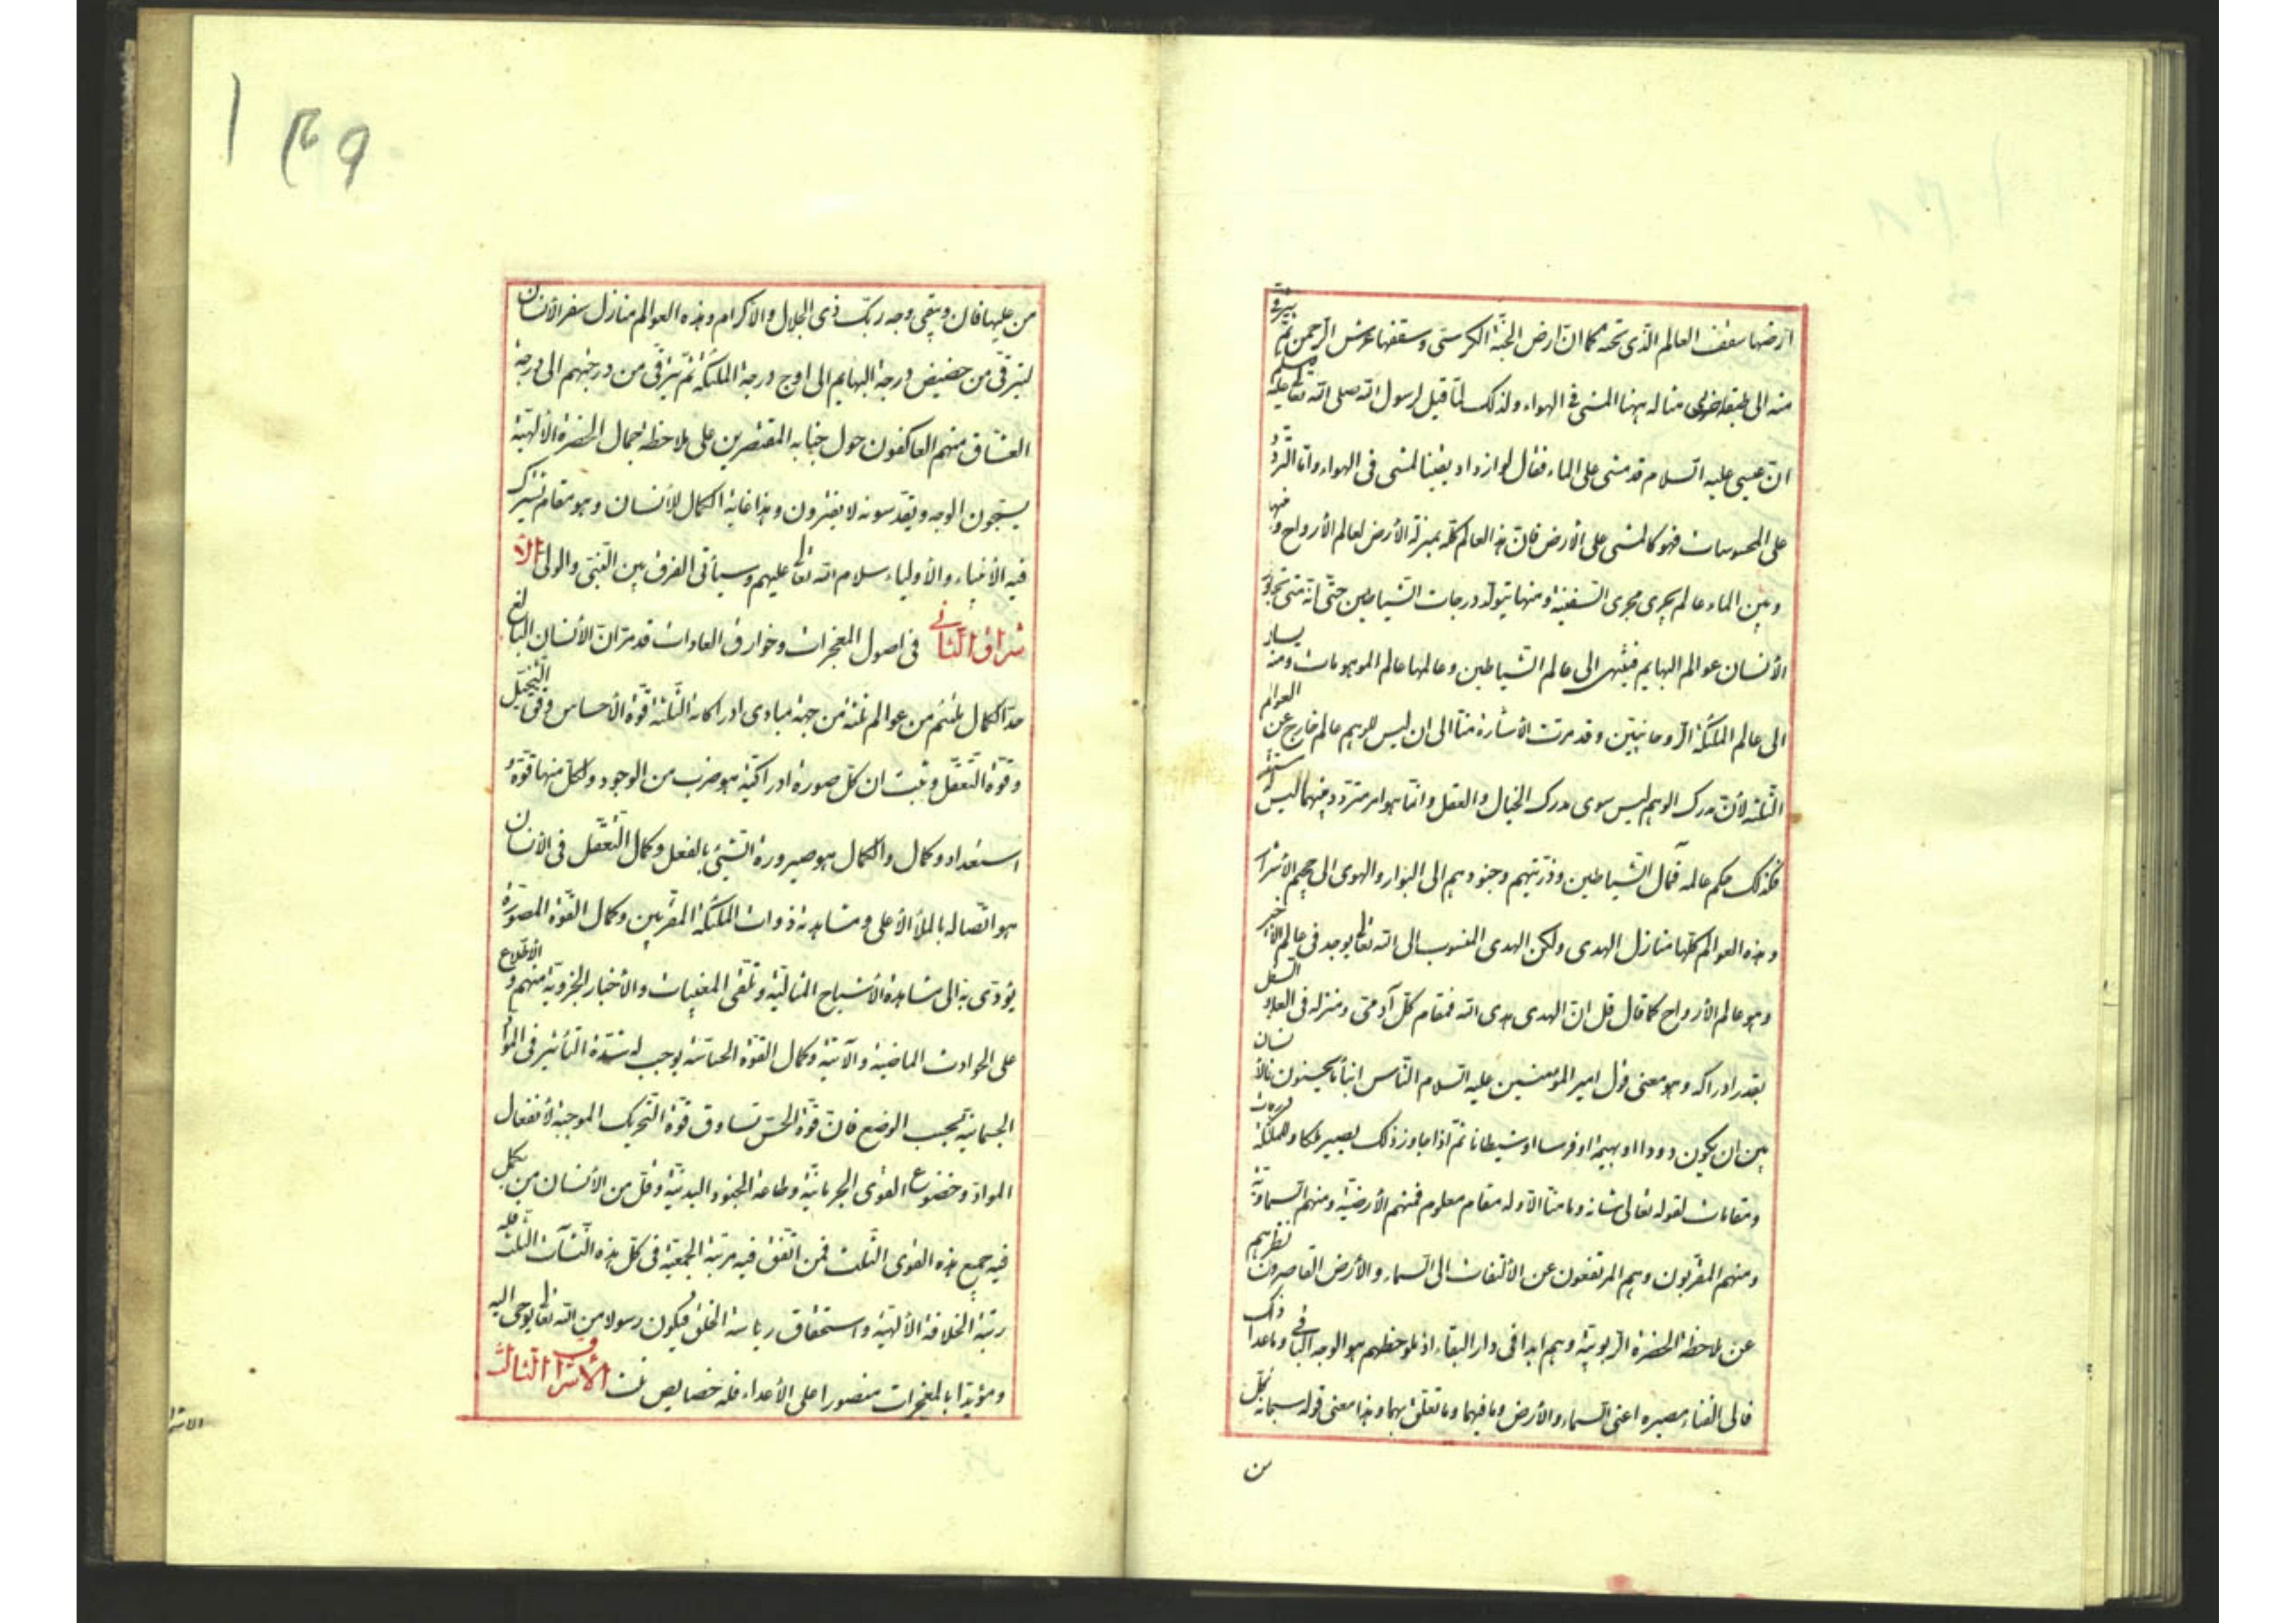 ارضها سقف العالم الذى تحته كما ان ارض الجنة الكرسى وسقفها عرش الرحمن ثم يترقى
منه الى طبقة اخرى مثاله يهنا المشى فى الهواء ولذلك لما قيل لرسول الله صلى الله تعا عليه وسلم
ان عيسى عليه السلام قد مشى على الماء فقال لو ازداد يقينا لمشى فى الهواء واما التردد
على المحسوسات فهو كالمشى على الأرض فان هذا العالم كله بمنزلة الأرض لعالم الأرواح و منها
وبين الماء عالم يجرى مجرى السفينة ومنها يتولد درجات الشياطين حتى انه متى تجاوز
الأنسان عوالم البهايم فينتهى الى عالم الشياطين وعالمها عالم الموهومات ومنه يسار
الى عالم الملئكة الروحانيين وقد مرت الأشارة منا الى ان ليس للوهم عالم خارج عن العوالم
الثلثة لأن مدرك الوهم ليس سوى مدرك الخيال والعقل وانما هو امر متردد بينهما ليس
فكذلك حكم عالمه فمآل الشياطين وذريتهم وجنودهم الى البوار والهوى الى جحيم الأشرار
وهذه العوالم كلها منازل الهدى ولكن الهدى المنسوب الى الله تعا يوجد فى عالم الأخير
وهو عالم الأرواح كما قال قل ان الهدى هدى الله فمقام كل آدمى ومنزله فى العلو والسفل
بقدر ادراكه وهو معنى قول امير المؤمنين عليه السلام الناس ابناء ما يحسنون فالأنسان
بين ان يكون دودا او بهيمة او فرسا او شيطانا ثم اذا جاوز ذلك يصير ملكا وللملئكة درجات
ومقامات لقوله تعالى شانه وما منا الا وله مقام معلوم فمنهم الأرضية ومنهم السماوية
ومنهم المقربون وهم المرتفعون عن الألتفات الى السماء والأرض القاصرون نظرهم
عن ملاحظة الحضرة الربوبية وهم ابدا فى دار البقاء اذ ملحوظهم هو الوجه الباقى وما عدا ذلك
فالى الفناء مصيره اعنى السماء والأرض وما فيهما وما تعلق بهما وهذا معنى قوله سبحانه كل
من
١٣٩
من عليها فان ويبقى وجه ربك ذى الجلال والاكرام وهذه العوالم منازل سفر الأنسان
ليترقى من حضيض درجة البهايم الى اوج درجة الملئكة ثم يترقى من درجتهم الى درجة
العشاق منهم العاكفون حول جنابه المقتصرين على ملاحظة جمال الحضرة الالهية
يسبحون الوجه ويقدسونه لا يفترون وهذا غاية الكمال للأنسان وهو مقام يشترك
فيه الأنبياء والأولياء سلام الله تعا عليهم وسيأتى الفرق بين النبى والولى الا
شراق الثانى فى اصول المعجزات وخوارق العادات قد مر ان الأنسان البالغ
حد الكمال ملتئم من عوالم ثلثة من جهة مبادى ادراكاته الثلثة قوة الأحساس وقوة التخيل
وقوة التعقل وثبت ان كل صورة ادراكية هو ضرب من الوجود ولكل منها قوة و
استعداد وكمال والكمال هو صيرورة الشئ بالفعل وكمال التعقل فى الأنسان
هو اتصاله بالملأ الأعلى ومشاهدة ذوات الملئكة المقربين وكمال القوة المصورة
يؤدى به الى مشاهدة الأشباح المثالية وتلقى المغيبات والأخبار الجزوية منهم والأطلاع
على الحوادث الماضية والآتية وكمال القوة الحساسة يوجب له شدة التأثير فى المواد
الجسمانية بحسب الوضع فان قوة الحس تساوق قوة التحريك الموجبة لأنفعال
المواد وخضوع القوى الجرمانية وطاعة الجنود البدنية وقل من الأنسان من يكمل
فيه جميع هذه القوى الثلث فمن اتفق فيه مرتبة الجمعية فى كل هذه النشآت الثلث فله
رتبة الخلافة الألهية واستحقاق رياسة الخلق فيكون رسولا من الله تعا يوحى اليه
ومؤيدا بالمعجزات منصورا على الأعداء فله خصايص ثلث الأشراق الثالث
الاشرا